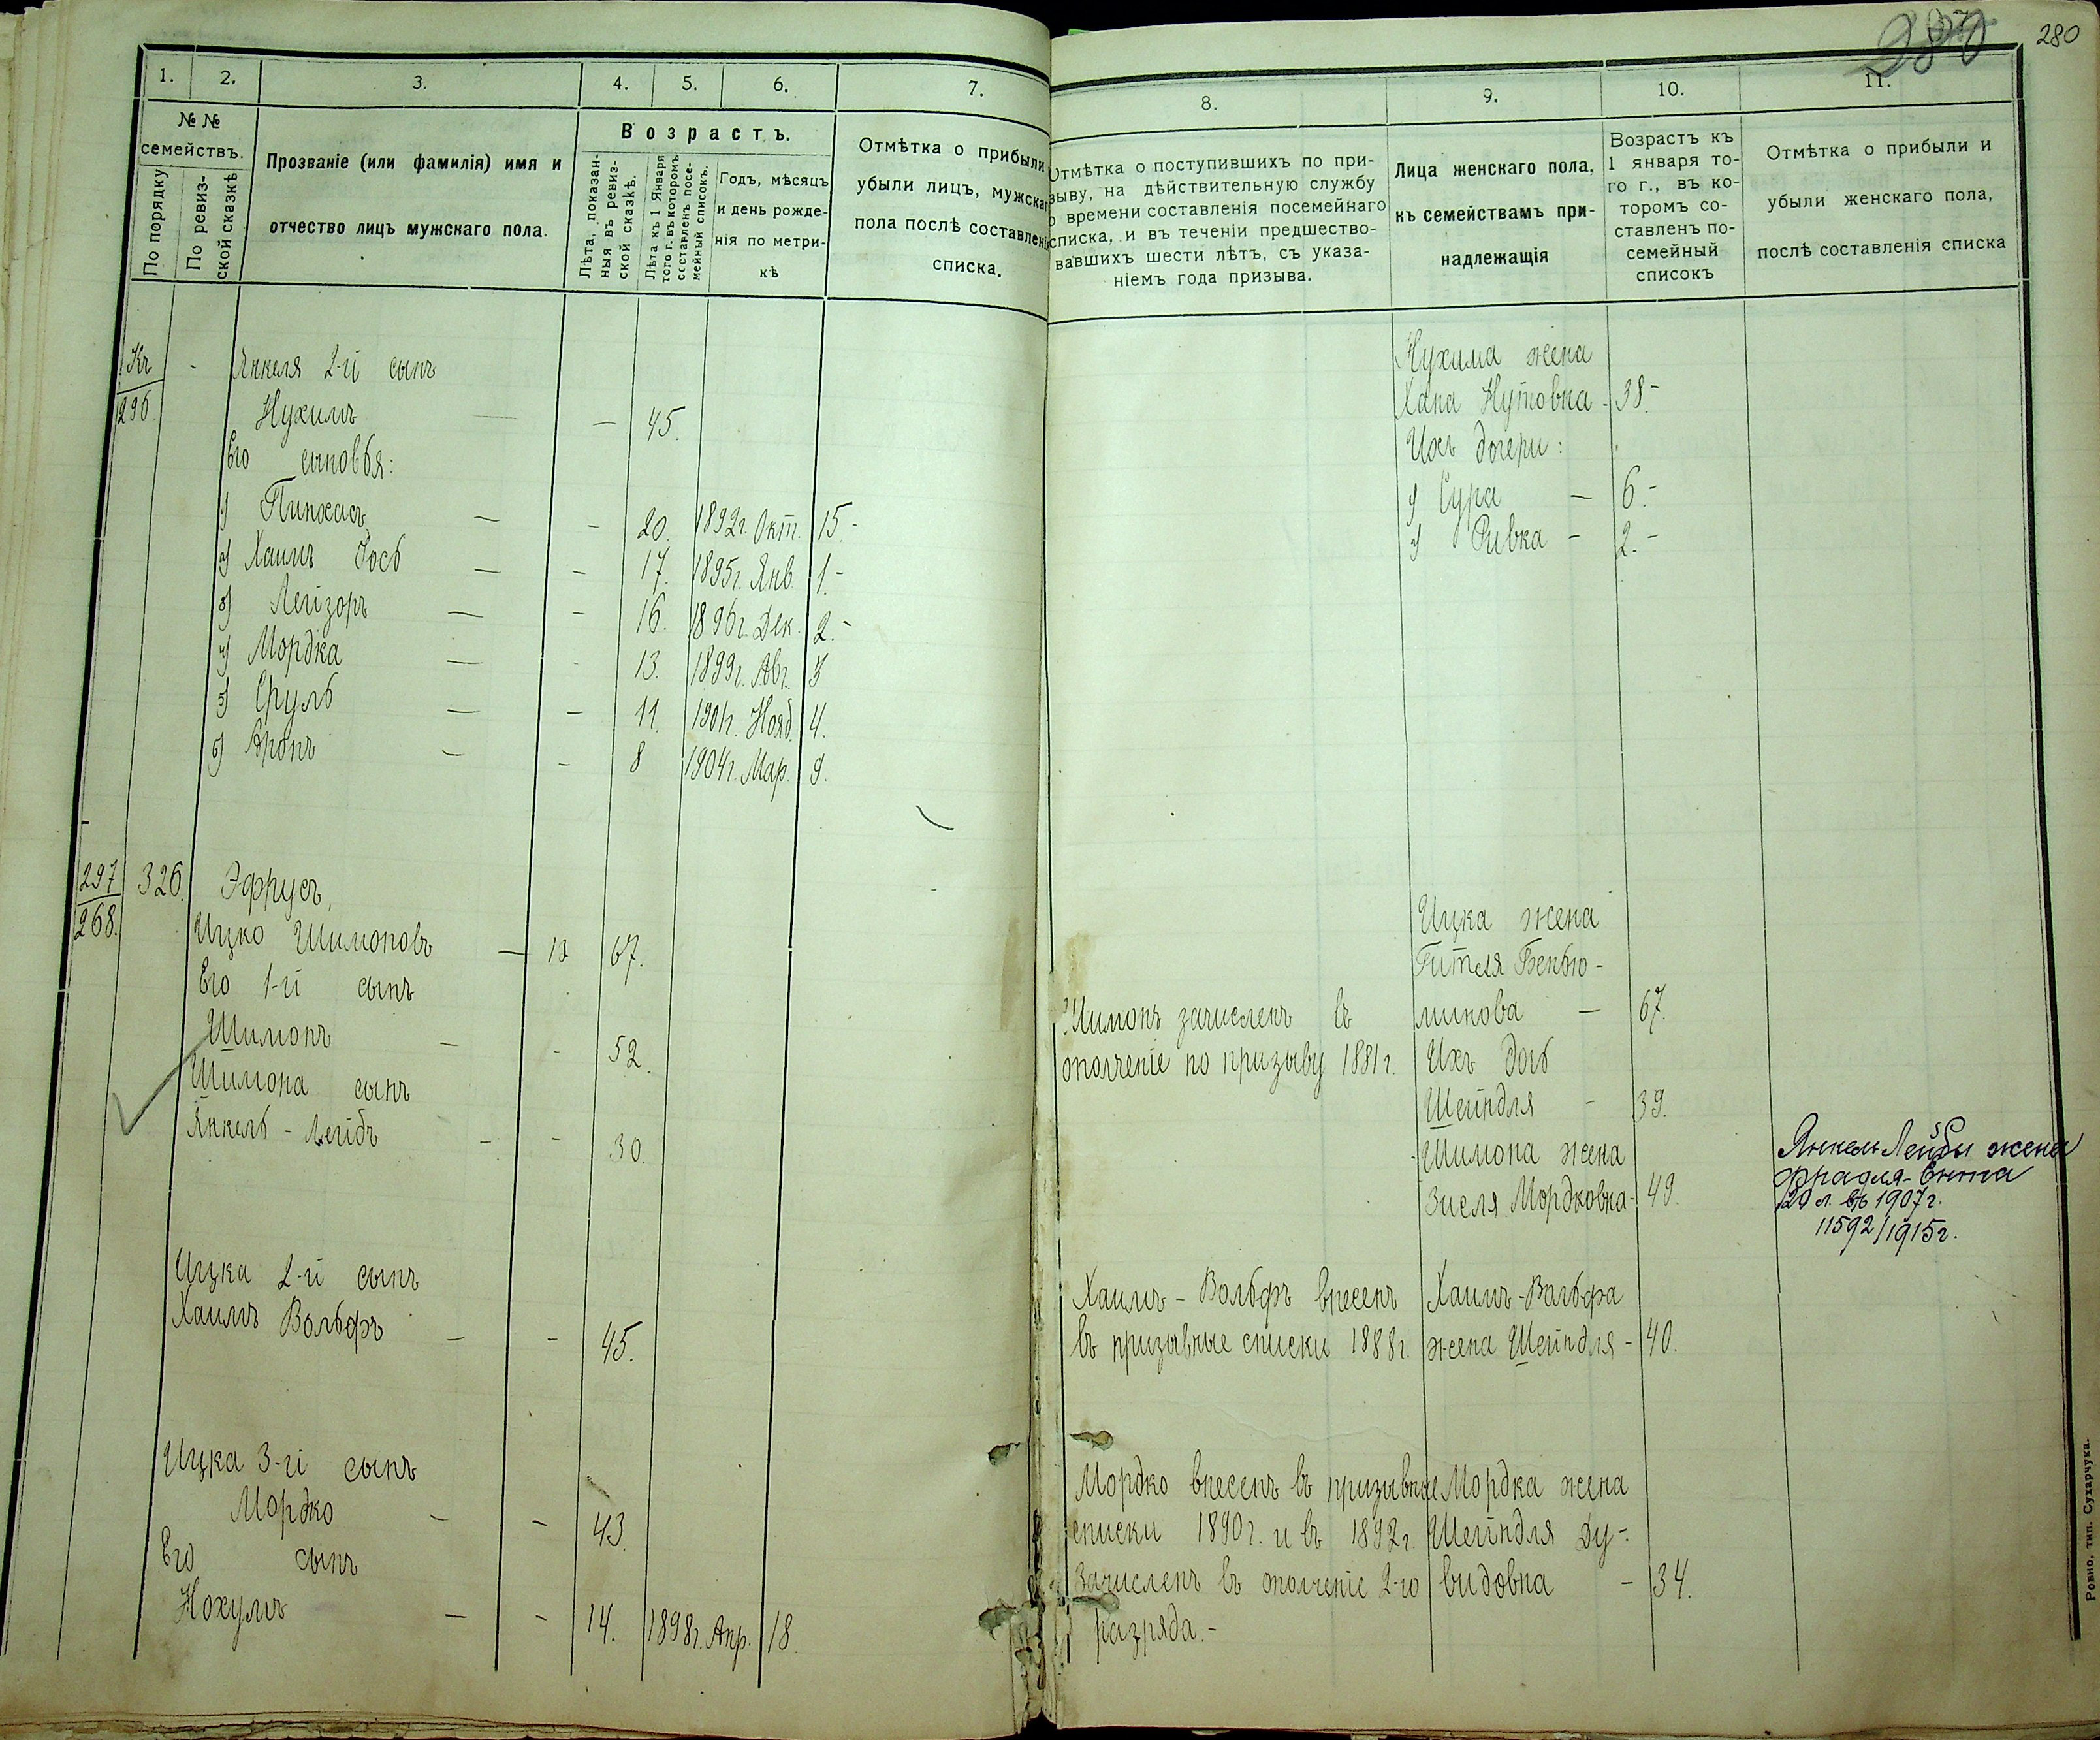 280
280
1. 2. 3. 4. 5. 6. 7.
№ № семействъ.
По порядку
По ревизской сказкѣ
Прозваніе (или фамилія) имя и
отчество лицъ мужскаго пола.
Возрастъ.
Лѣта, показанныя въ ревизской сказкѣ.
Лѣта къ 1 Января того г. въ которомъ составленъ посемейный списокъ.
Годъ, мѣсяцъ
и день рожде-
нія по метри-
кѣ
Отмѣтка о прибыли
убыли лицъ, мужскаг
пола послѣ составленія
списка.
Къ 296. - Янкеля 2-й сынъ
Нухимъ — — 45.
Его сыновья:
1) Пинхасъ — - 20. 1892г. Окт. 15.-
2) Хаимъ Іось — - 17. 1895г. Янв. 1.-
3) Лейзоръ — - 16. 1896г. Дек. 2.-
4) Мордка — - 13. 1899г. Авг. 3
5) Сруль — - 11. 1901г. Нояб. 4.
6) Аронъ — - 8 1904г. Мар. 9.
297 326. Эфрусъ,
268. Ицко Шимоновъ — 13 67.
Его 1-й сынъ
Шимонъ — - 52.
Шимона сынъ
Янкель-Лейбъ - - 30.
Ицка 2-й сынъ
Хаимъ Вольфъ — - 45.
Ицка 3-й сынъ
Мордко - - 43.
Его сынъ
Нохумъ — - 14. 1898г. Апр. 18.
8. 9. 10. 11.
Отмѣтка о поступившихъ по при-
зыву, на дѣйствительную службу
о времени составленія посемейнаго
списка, и въ теченіи предшество-
вавшихъ шести лѣтъ, съ указа-
ніемъ года призыва.
Лица женскаго пола,
къ семействамъ при-
надлежащія
Возрастъ къ
1 января то-
го г., въ ко-
торомъ со-
ставленъ по-
семейный
списокъ
Отмѣтка о прибыли и
убыли женскаго пола,
послѣ составленія списка
Нухима жена
Хана Нутовна - 38.-
Ихъ дочери:
1) Сура — 6.-
2) Ривка - 2.-
Ицка жена
Гитля Бенью-
Шимонъ зачисленъ въ минова — 67.
ополченіе по призыву 1881г. Ихъ дочь
Шейндля - 39.
Шимона жена
Зисля Мордковна - 49.
Янкель Лейбы жена
Фрадля-Ента
20 л. въ 1907г.
11592/1915г.
Хаимъ-Вольфъ внесенъ Хаимъ-Вольфа
въ призывные списки 1888г. жена Шейндля - 40.
Мордко внесенъ въ призывные Мордка жена
списки 1890г. и въ 1892г. Шейндля Ду-
Зачисленъ въ ополченіе 2-го видовна - 34.
разряда.-
Ровно, тип. Сухарчука.